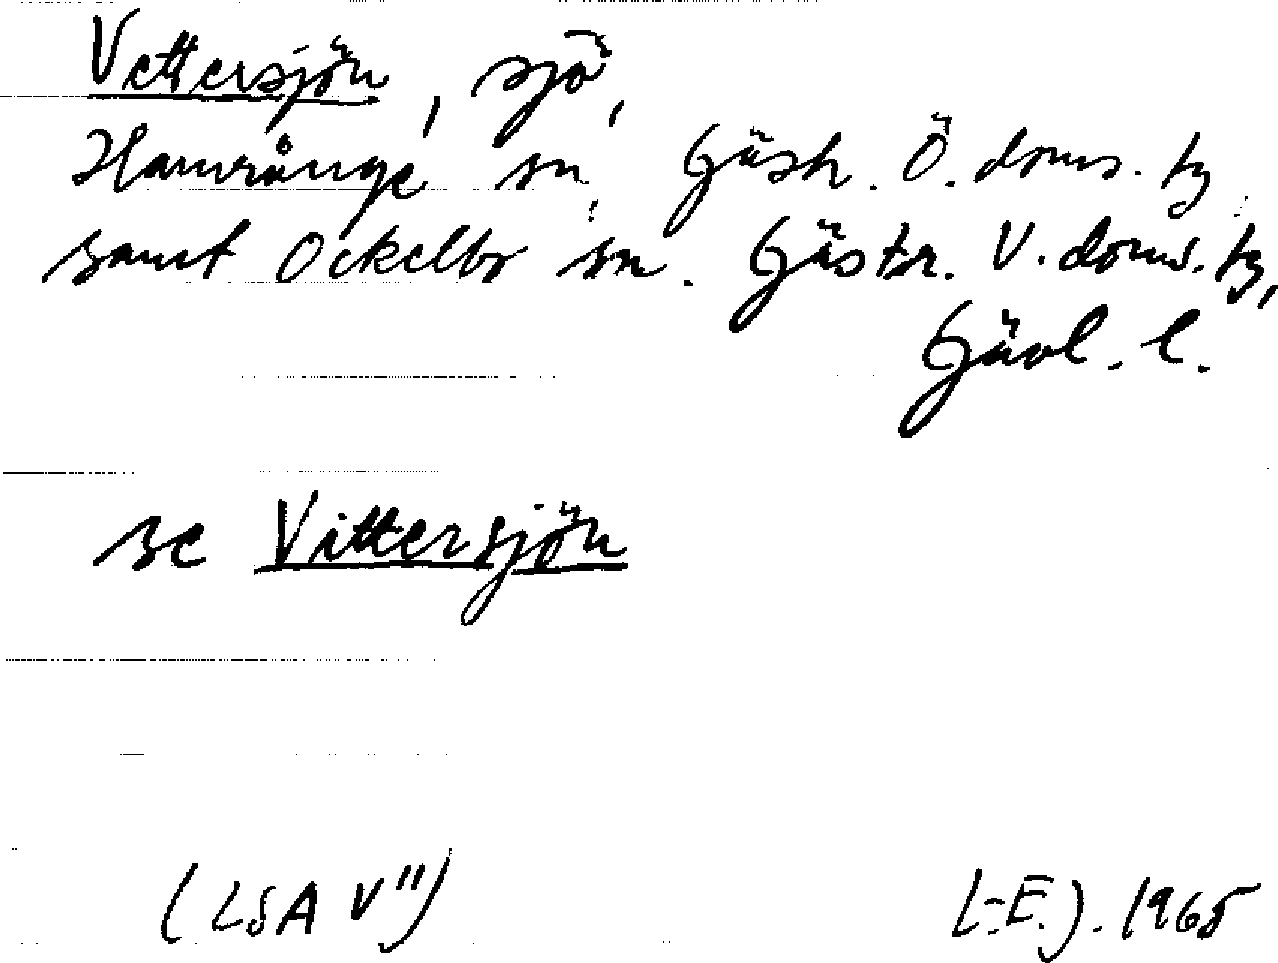 Vettersjön, sjö,
Hamrånge sn, Gästr. Ö. doms. tg
samt Ockelbo sn. Gästr. V. doms. tg,
Gävl. l.
se Vittersjön
(LSA V")
L-E.J. 1965